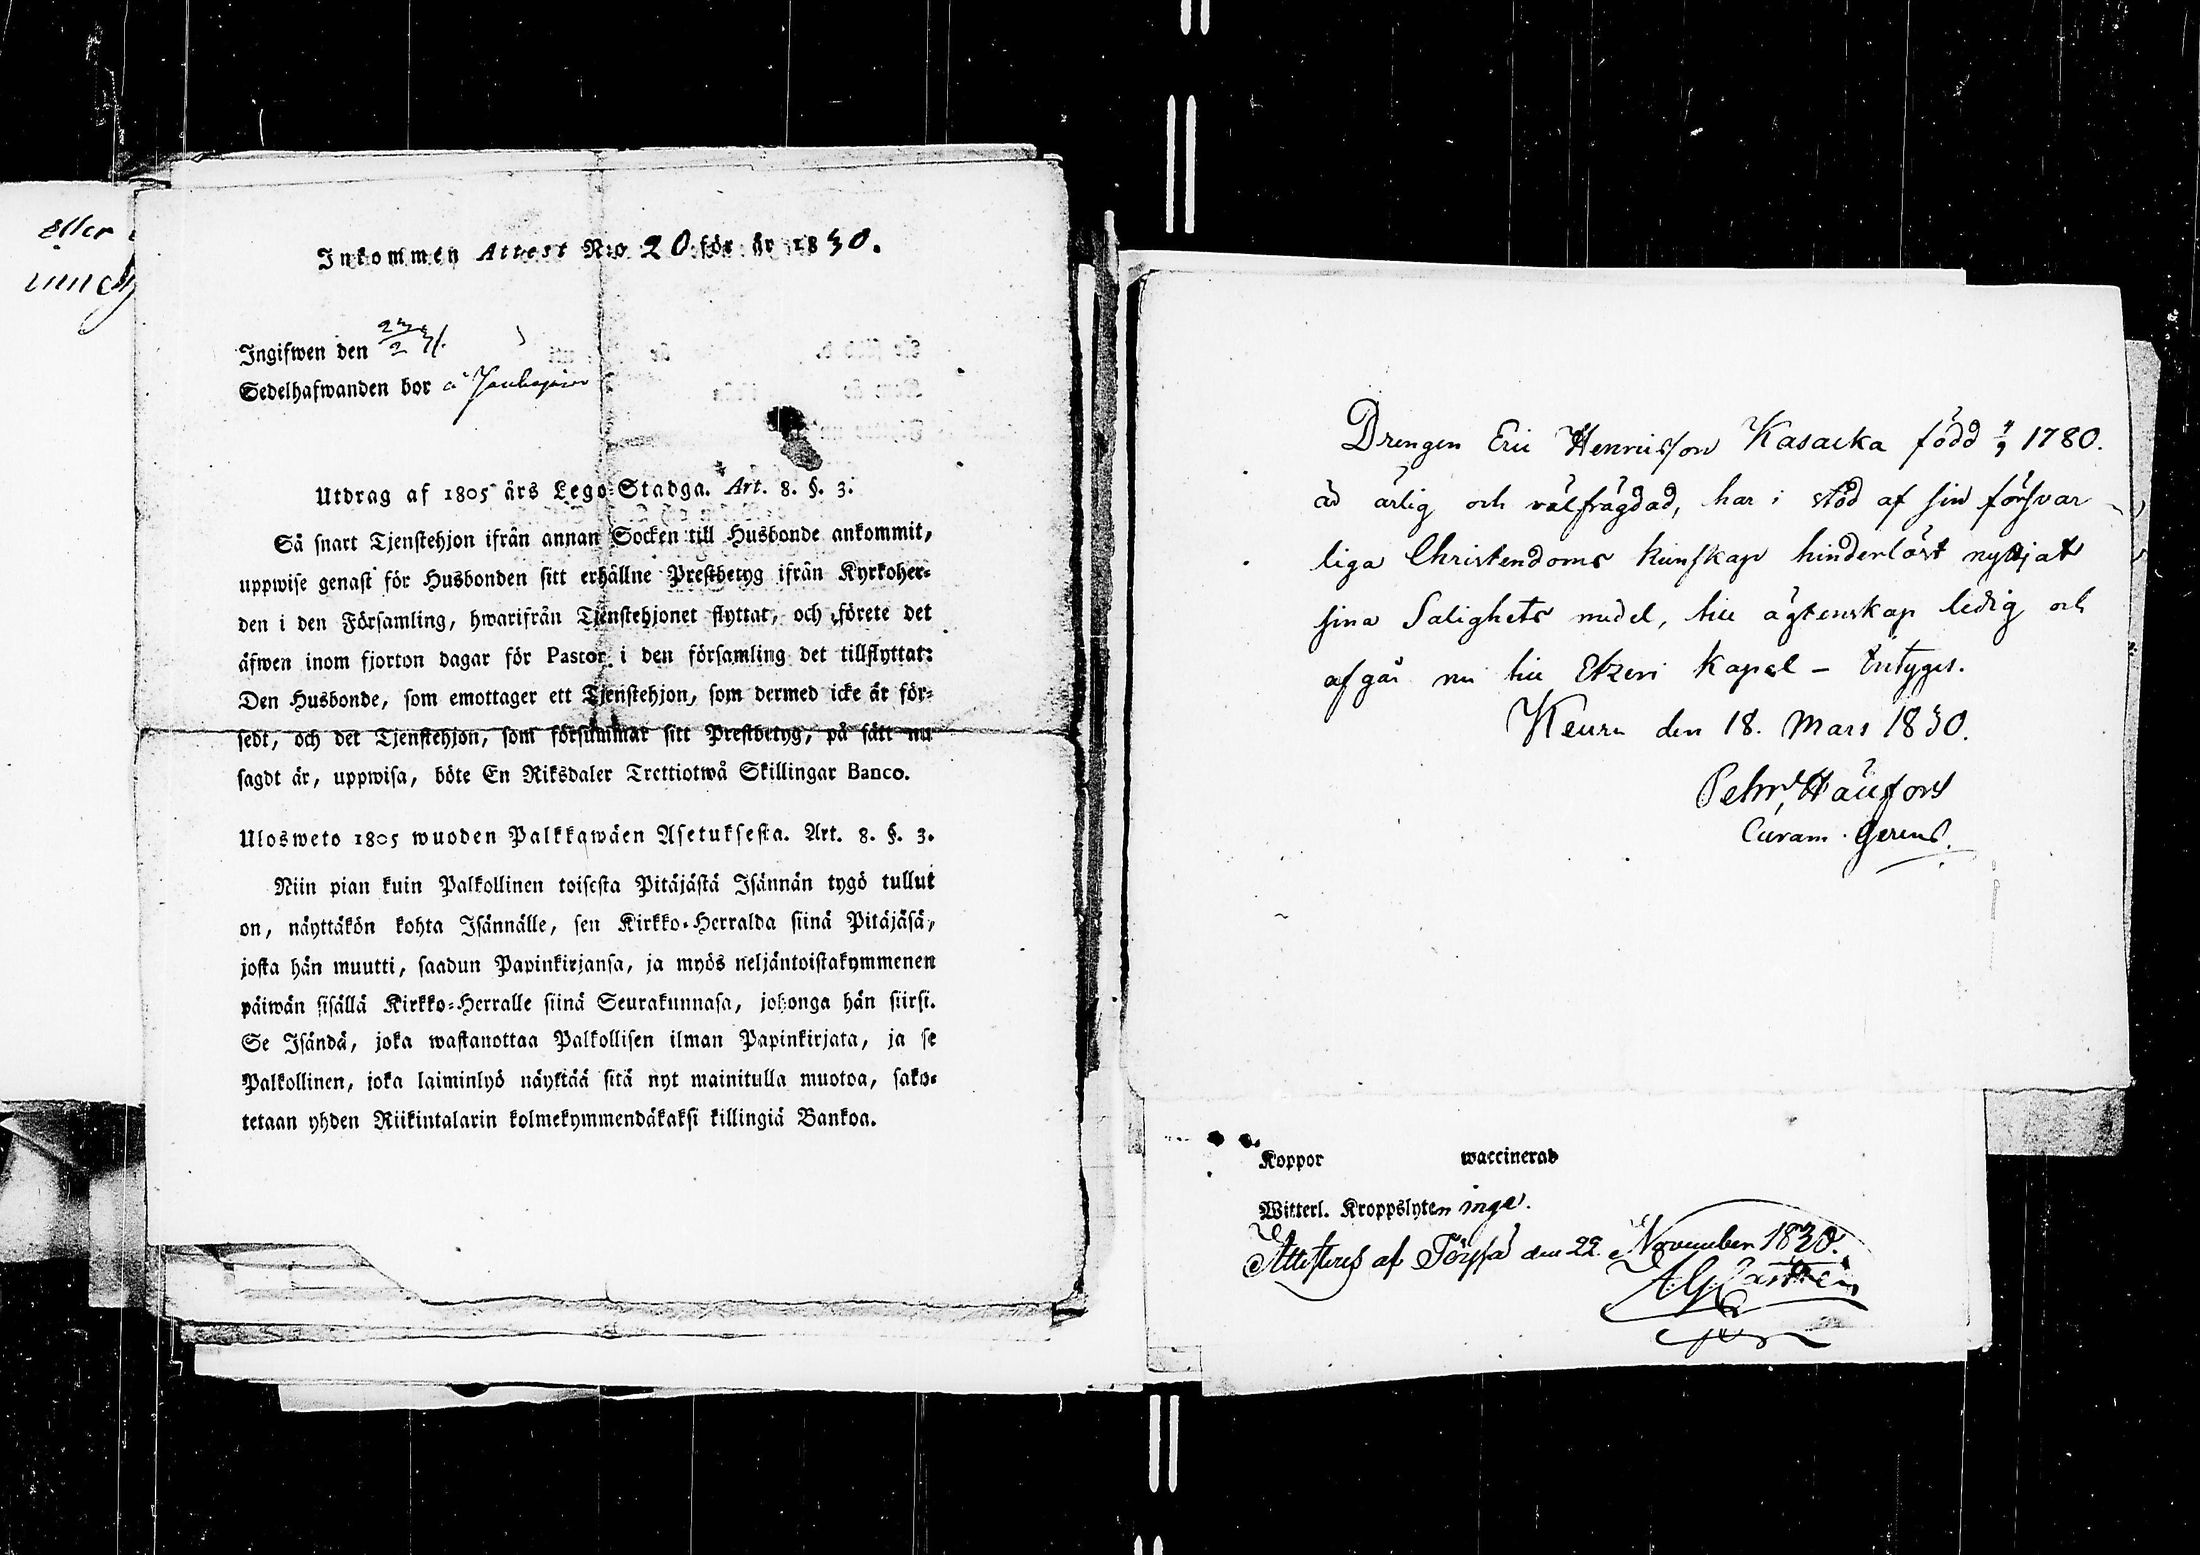 eller
Inkommen Attest N:o 20 för år 1830.
Ingifwen den 23/2 31.
Sedelhafwanden bor å
Utdrag af 1805 års Lego-Stadga. Art. 8. §. 3.
Så snart Tjenstehjon ifrån annan Socken till Husbonde ankommit,
uppwise genast för Husbonden sitt erhållne Prestbetyg ifrån Kyrkoher-
den i den Församling, hwarifrån Tjenstehjonet flyttat, och förete det
äfwen inom fjorton dagar för Pastor i den församling det tillflyttat:
Den Husbonde, som emottager ett Tjenstehjon, som dermed icke är för-
sedt, och det Tjenstehjon, som försummar sitt Prestbetyg, på sätt nu
sagdt är, uppwisa, böte En Riksdaler Trettiotwå Skillingar Banco.
Ulosweto 1805 wuoden Palkkawäen Asetuksesta. Art. 8. §. 3.
Niin pian kuin Palkollinen toisesta Pitäjästä Isännän tygö tullut
on, näyttäkön kohta Isännälle, sen Kirkko-Herralda siinä Pitäjäsä,
josta hän muutti, saadun Papinkirjansa, ja myös neljäntoistakymmenen
päiwän sisällä Kirkko-Herralle siinä Seurakunnasa, johonga hän siirsi.
Se Isändä, joka wastanottaa Palkollisen ilman Papinkirjata, ja se
Palkollinen, joka laiminlyö näyttää sitä nyt mainitulla muotoa, sako-
tetaan yhden Riikintalarin kolmekymmendäkaksi killingiä Bankoa.
Drengen Eric Henricsson Kasacka född 1780.
är ärlig och välfrägdad, har i stöd af sin försvar
liga Christendoms kunskap hinderlöst nyttjat
sina Salighets medel, till ägtenskap ledig och
afgår nu till Etzeri Kapel – Intyges.
Keuru den 18. Mars 1830.
Pehr
Curam gerens.
Koppor waccinerad
Witterl. Kroppslyten inga.
Attesteras af Töysä den 22. November 1830.